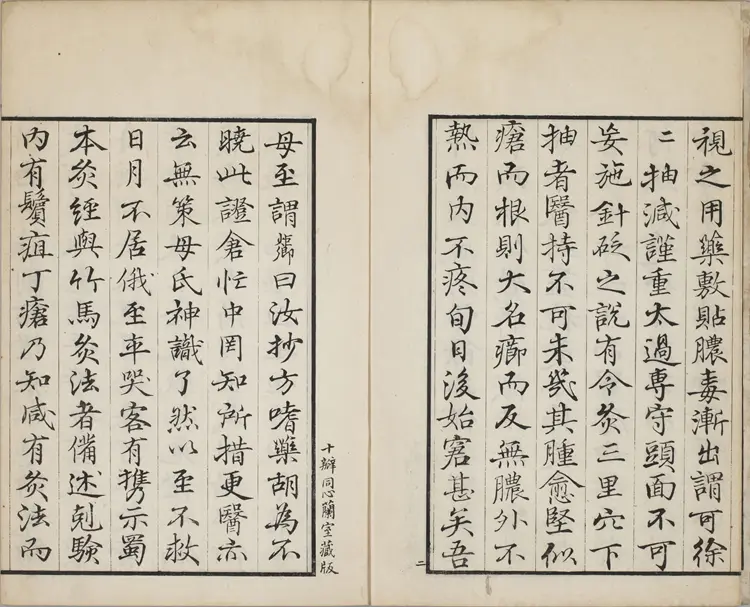 視之用藥敷貼膿毒漸出謂可徐
二抽減謹重太過專守頭面不可
妄施針砭之說有令灸三里穴下
抽者醫持不可未幾其腫愈堅似
瘡而根則大名癤而反無膿外不
熱而内不疼旬日後始窘甚矣吾
二
十瓣同心蘭室藏版
母至謂曰汝抄方嗜藥胡為不
曉此證倉忙中罔知所措更醫亦
云無策母氏神識了然以至不救
日月不居俄至卒哭客有攜示蜀
本灸經與竹馬灸法者備述剋驗
内有鬢疽丁瘡乃知咸有灸法而